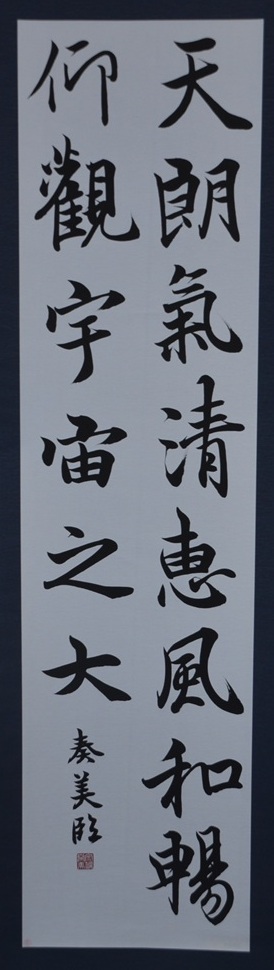 天朗氣清恵風和暢
仰觀宇宙之大
奏美臨